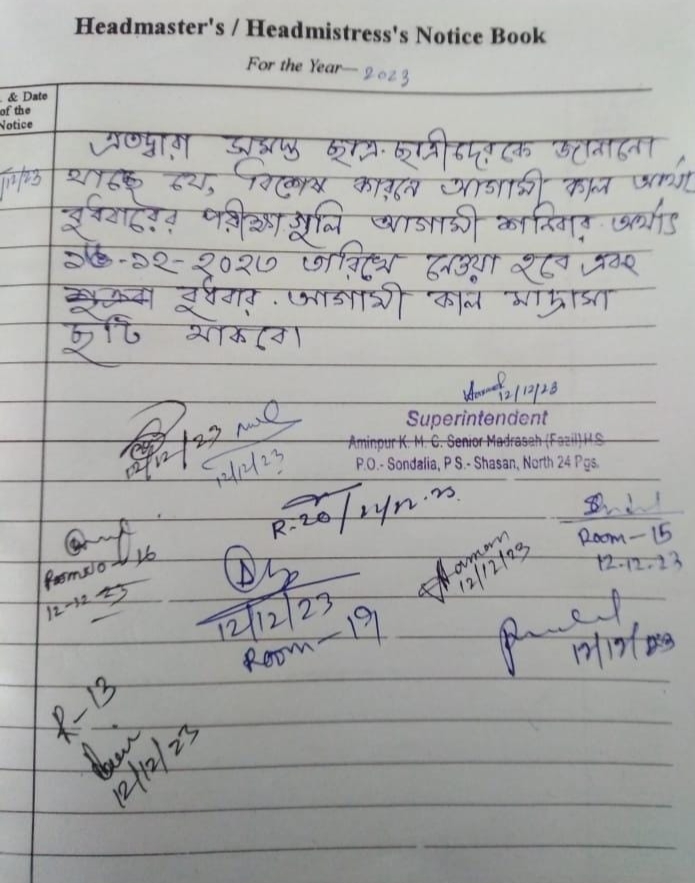 Headmaster's / Headmistress's Notice Book
For the Year— 2023
& Date
of the
Notice
এতদ্বারা সমস্ত ছাত্র-ছাত্রীদেরকে জানানো
/12/23 যাচ্ছে যে, বিশেষ কারনে আগামী কাল অর্থাৎ
বুধবারের পরীক্ষা গুলি আগামী শনিবার অর্থাৎ
১৬-১২-২০২৩ তারিখে নেওয়া হবে এবং
বুধবার আগামী কাল মাদ্রাসা
ছুটি থাকবে।
12/12/23
Superintendent
Aminpur K. M. C. Senior Madrasah (Fazil) H.S
P.O.- Sondalia, P S.- Shasan, North 24 Pgs.
12/12/23
12/12/23
R-20/12/12.23
Room-15
12-12-23
Room no-16
12-12-23
12/12/23
12/12/23
Room-19
12/12/23
R-13
12/12/23